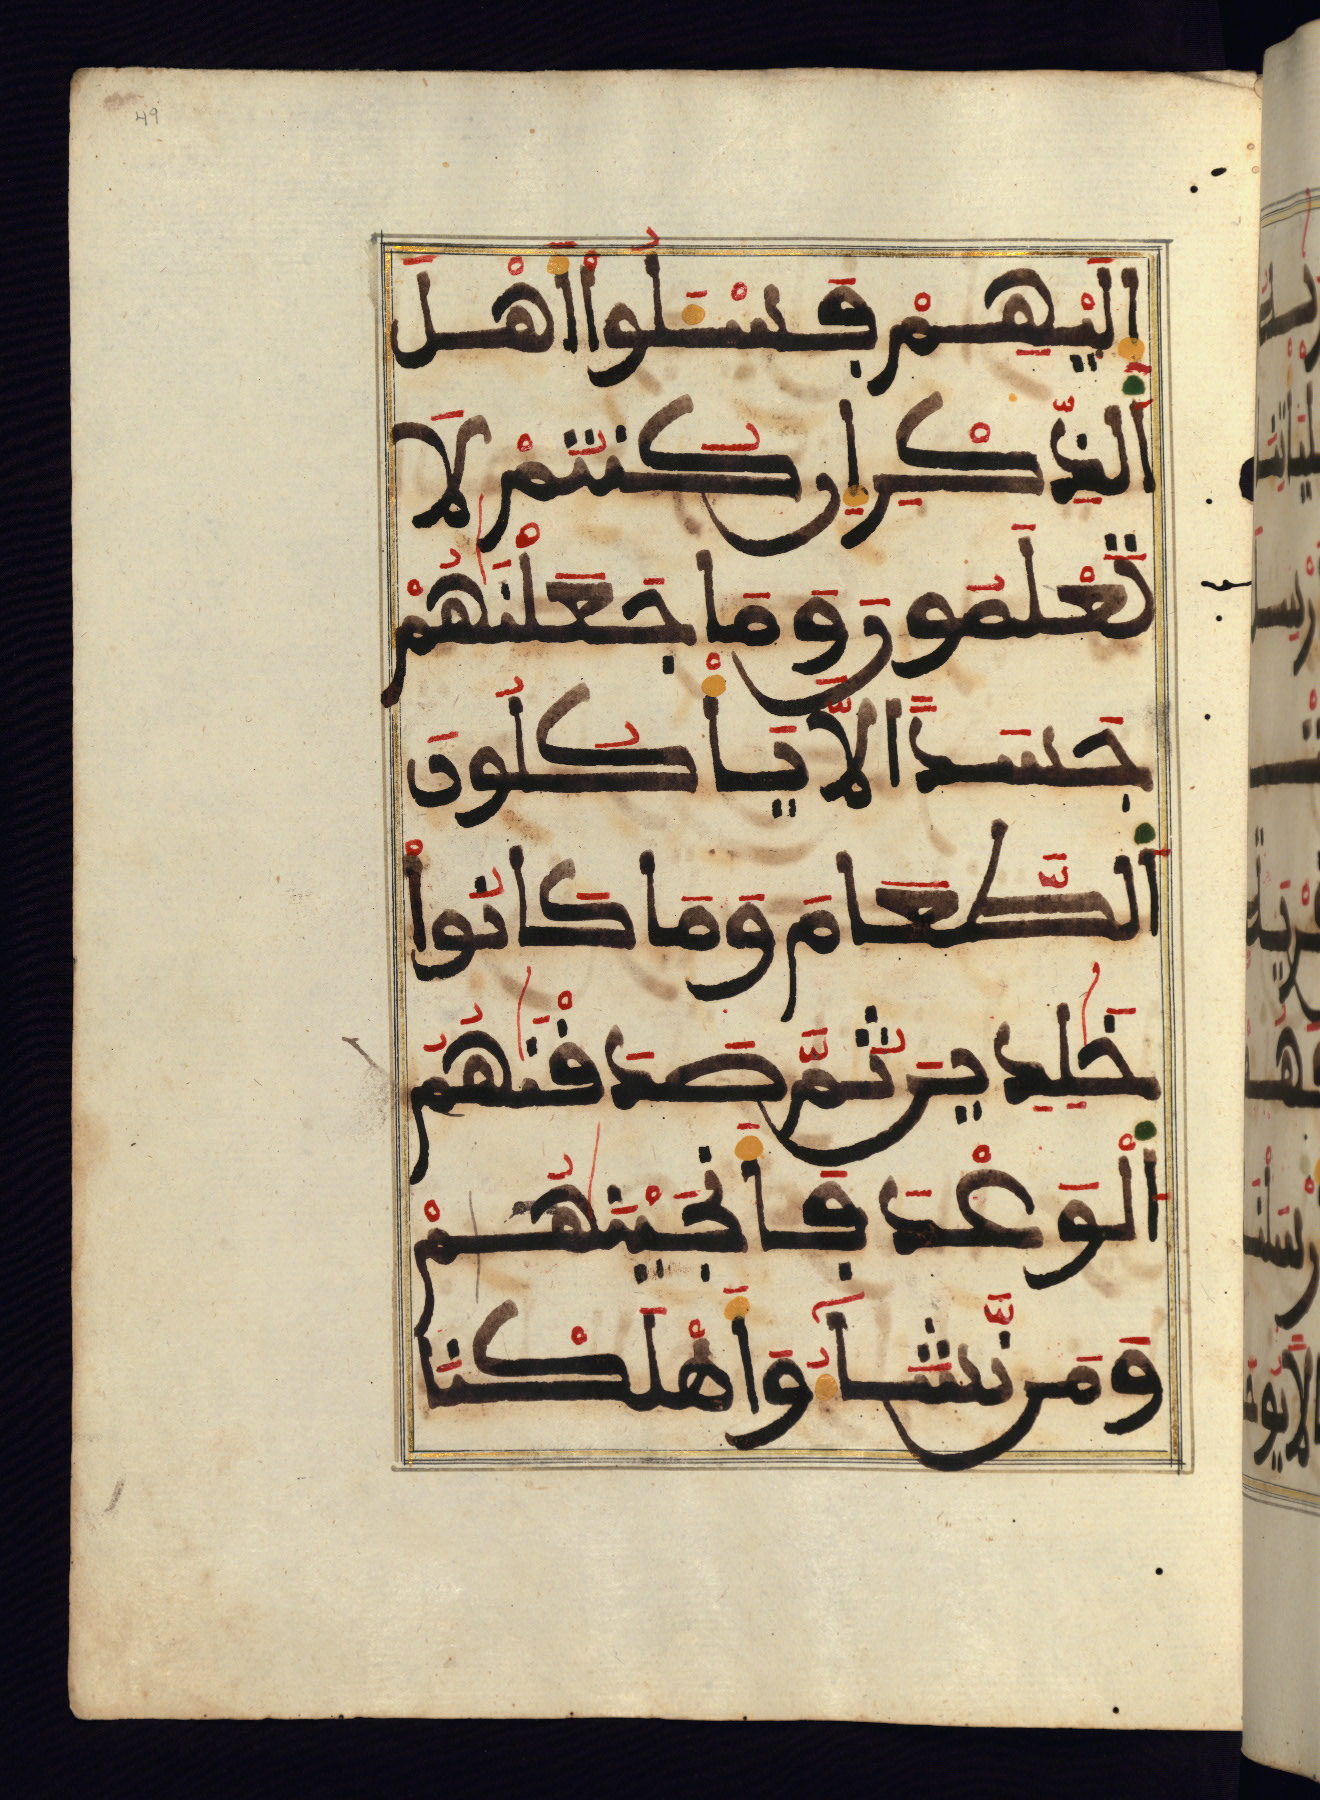 49
إِلَيْهِمْ فَسْـَٔلُوٓا۟ أَهْلَ
ٱلذِّكْرِ إِن كُنتُمْ لَا
تَعْلَمُونَ وَمَا جَعَلْنَٰهُمْ
جَسَدًا لَّا يَأْكُلُونَ
ٱلطَّعَامَ وَمَا كَانُوا۟
خَٰلِدِينَ ثُمَّ صَدَقْنَٰهُمُ
ٱلْوَعْدَ فَأَنجَيْنَٰهُمْ
وَمَن نَّشَآءُ وَأَهْلَكْنَا